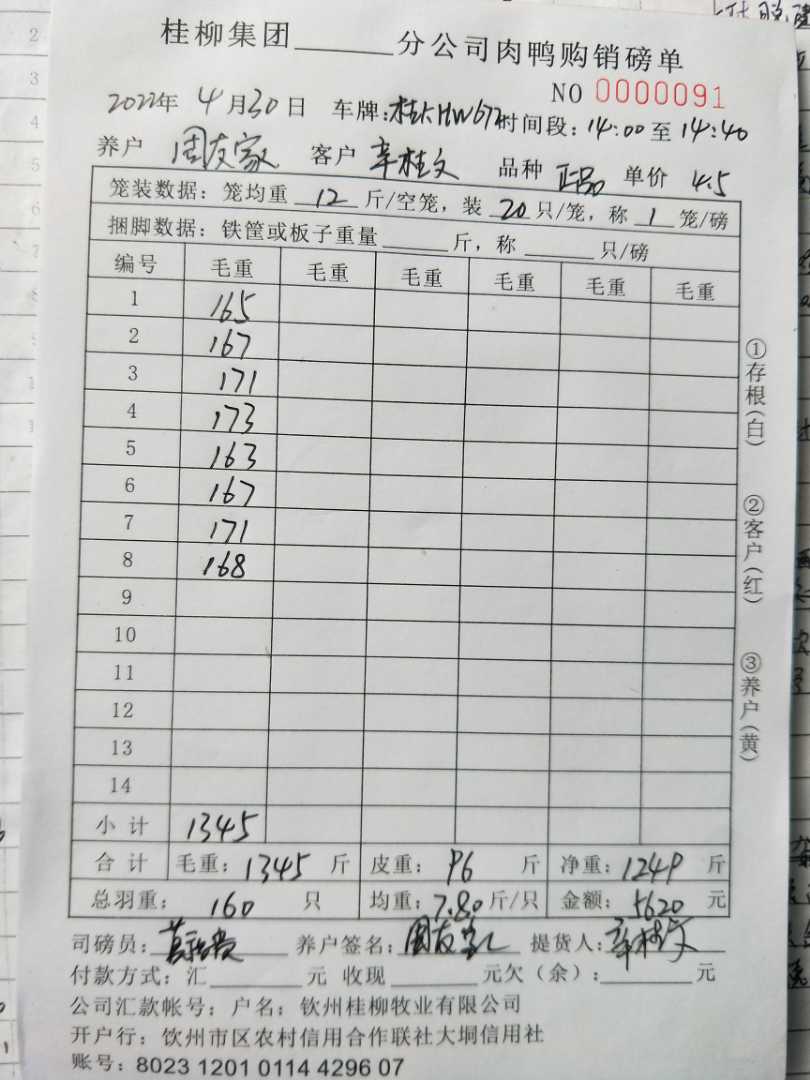 桂柳集团______分公司肉鸭购销磅单
NO 0000091
2022年 4月30日 车牌:桂KHW672 时间段:14:00至14:40
养户 周友家 客户 辛桂文 品种 正品 单价 4.5
笼装数据:笼均重 12 斤/空笼,装 20 只/笼,称 1 笼/磅
捆脚数据:铁筐或板子重量______斤,称______只/磅
编号 毛重 毛重 毛重 毛重 毛重 毛重
1 165
2 167
3 171
4 173
5 163
6 167
7 171
8 168
9
10
11
12
13
14
小计 1345
合计 毛重:1345斤 皮重:96斤 净重:1249斤
总羽重:160只 均重:7.80斤/只 金额:5620元
司磅员: 养户签名:周友家 提货人:辛桂文
付款方式:汇______元 收现______元欠(余):______元
公司汇款帐号:户名:钦州桂柳牧业有限公司
开户行:饮州市区农村信用合作联社大垌信用社
账号:8023 1201 0114 4296 07
①存根(白)
②客户(红)
③养户(黄)